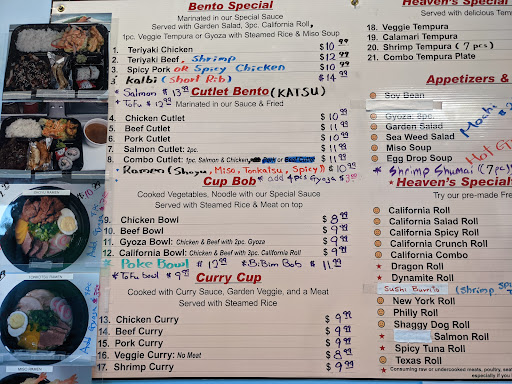 Bento Special
Marinated in our Special Sauce
Served with Garden Salad, 3pc. California Roll,
1pc. Veggie Tempura or Gyoza with Steamed Rice & Miso Soup
1. Teriyaki Chicken $10.99
2. Teriyaki Beef, Shrimp $12.99
3. Spicy Pork OR Spicy Chicken $10.99
Kalbi (Short Rib) $14.99
* Salmon $13.99
* Tofu $12.99
Cutlet Bento (KATSU)
Marinated in our Sauce & Fried
4. Chicken Cutlet $10.99
5. Beef Cutlet $11.99
6. Pork Cutlet $10.99
7. Salmon Cutlet: 2pc. $11.99
8. Combo Cutlet: 1pc. Salmon & Chicken, $11.99
* Ramen (Shoyu, Miso, Tonkatsu, Spicy) $10.99
Cup Bob * add 4pcs Gyoza
Cooked Vegetables, Noodle with our Special Sauce
Served with Steamed Rice & Meat on top
9. Chicken Bowl $8.99
10. Beef Bowl $9.99
11. Gyoza Bowl: Chicken & Beef with 2pc. Gyoza $9.99
12. California Bowl: Chicken & Beef with 3pc. California Roll $9.99
* Poke Bowl $12.99 * Bi Bim Bob $11.99
* Tofu bowl $9.99
Curry Cup
Cooked with Curry Sauce, Garden Veggie, and a Meat
Served with Steamed Rice
13. Chicken Curry $9.99
14. Beef Curry $9.99
15. Pork Curry $9.99
16. Veggie Curry: No Meat $8.99
17. Shrimp Curry $9.99
Heaven's Special
Served with delicious Tem
18. Veggie Tempura
19. Calamari Tempura
20. Shrimp Tempura (7 pcs)
21. Combo Tempura Plate
Appetizers &
Soy Bean
Gyoza: 8pc.
Garden Salad
Sea Weed Salad
Miso Soup
Egg Drop Soup
Mochi
Hot
* Shrimp Shumai (7 pc)
* Heaven's Special
Try our pre-made Fre
California Roll
California Salad Roll
California Spicy Roll
California Crunch Roll
California Combo
Dragon Roll
Dynamite Roll
Sushi Burrito (Shrimp
New York Roll
Philly Roll
Shaggy Dog Roll
Salmon Roll
Spicy Tuna Roll
Texas Roll
Consuming raw or undercooked meats, poultry, sea
especially if you
SHOYU RAMEN
Add Gyoza
TONKOTSU RAMEN
Add Gyoza
MISO RAMEN